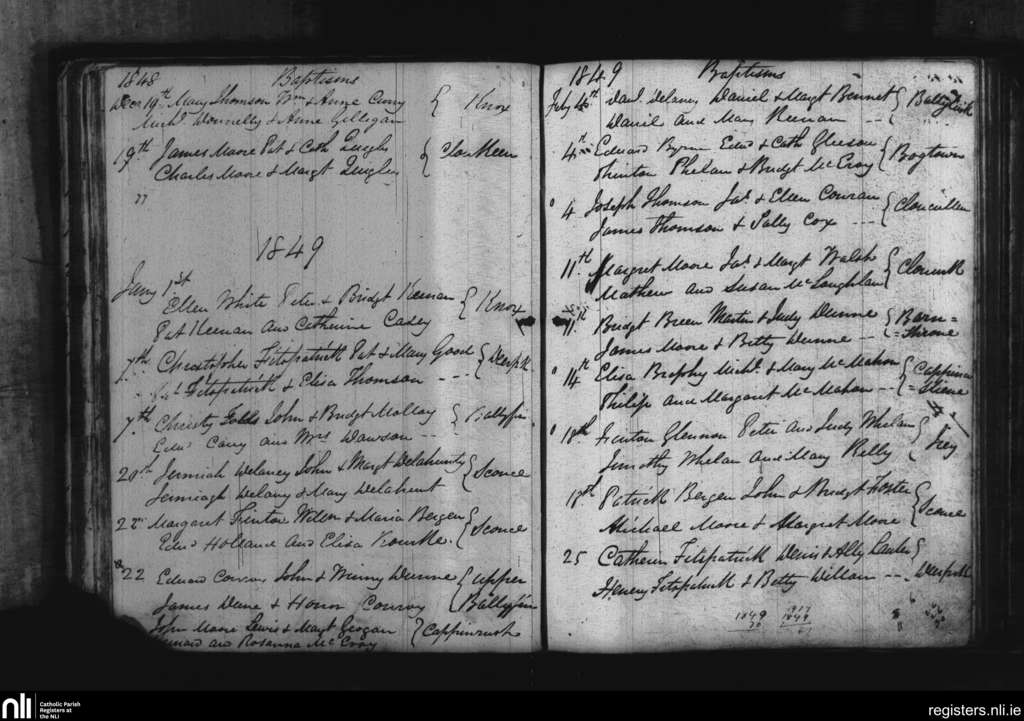 1848 Baptisms
Decr 19th Mary Thomson Wm & Anne Curry { Knox
Michl Donnelly & Anne Gilligan
19th James Moore Pat & Cath Quigly
Charles Moore & Margt Quigly
"
1849
Jany 1st
Ellen White Peter & Bridgt Keenan { Knox
Pat Keenan and Catherine Casey
7th Christopher Fitzpatrick Pat & Mary Good {
Fitzpatrick & Elisa Thomson
7th Christy John & Bridgt Molloy { Ballyfin
Edwd Casey and Mrs Dawson
20th Jermiah Delaney John & Margt Delahunty { Sconce
Jermiagh Delany & Mary Delahunt
22 Margaret Fenton & Maria Bergen { Sconce
Edwd Holland and Elisa Rourke
22 Edward Conroy John & Winny Dunne { Upper
James Dane & Honor Conroy Ballyfin
John Moore Lewis & Margt Geogan { Cappinrush
and Rosanna McEvoy
1849 Baptisms
Feby 4th Danl Delaney Daniel & Margt Bennet {
Daniel and Mary Keenan
4th Edward Byrne Edwd & Cath Gleeson { Bogtown
Fhinton Phelan & Bridgt McEvoy
4 Joseph Thomson Jas & Ellen Conran {
James Thomson & Sally Cox
11th Margret Moore Jas & Margt Walsh {
Mathew and Susan McLoughlan
11th Bridgt Breen Martin & Judy Dunne { Barn=
James Moore & Betty Dunne =throne
14th Elisa Brophy Michl & Mary McMahon {
Philip and Margaret McMahon
18th Finton Glennon Peter and Judy Whelan {
Timothy Whelan and Mary Kelly
18th Patrick Bergen John & Bridgt Foster { Sconce
Michael Moore & Margret Moore
25 Cathern Fitzpatrick Denis & Ally Lawler {
Henery Fitzpatrick & Betty
1849
nli
Catholic Parish
Registers at
the NLI
registers.nli.ie